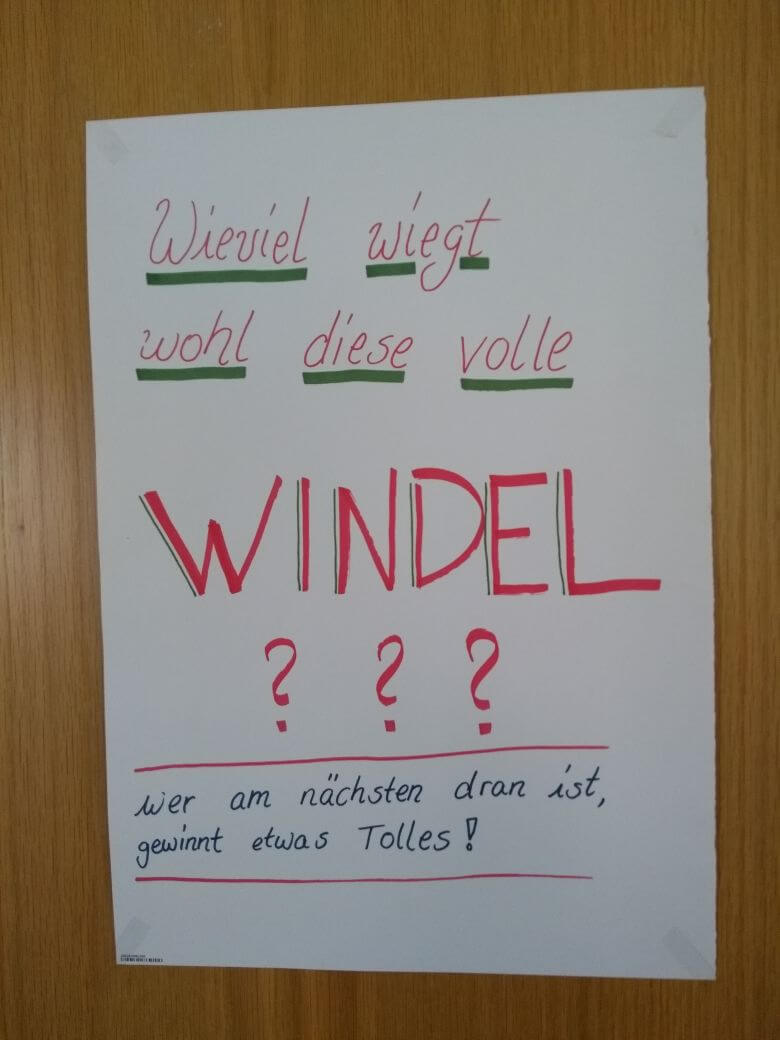 Wieviel wiegt
wohl diese volle
WINDEL
? ? ?
wer am nächsten dran ist,
gewinnt etwas Tolles!